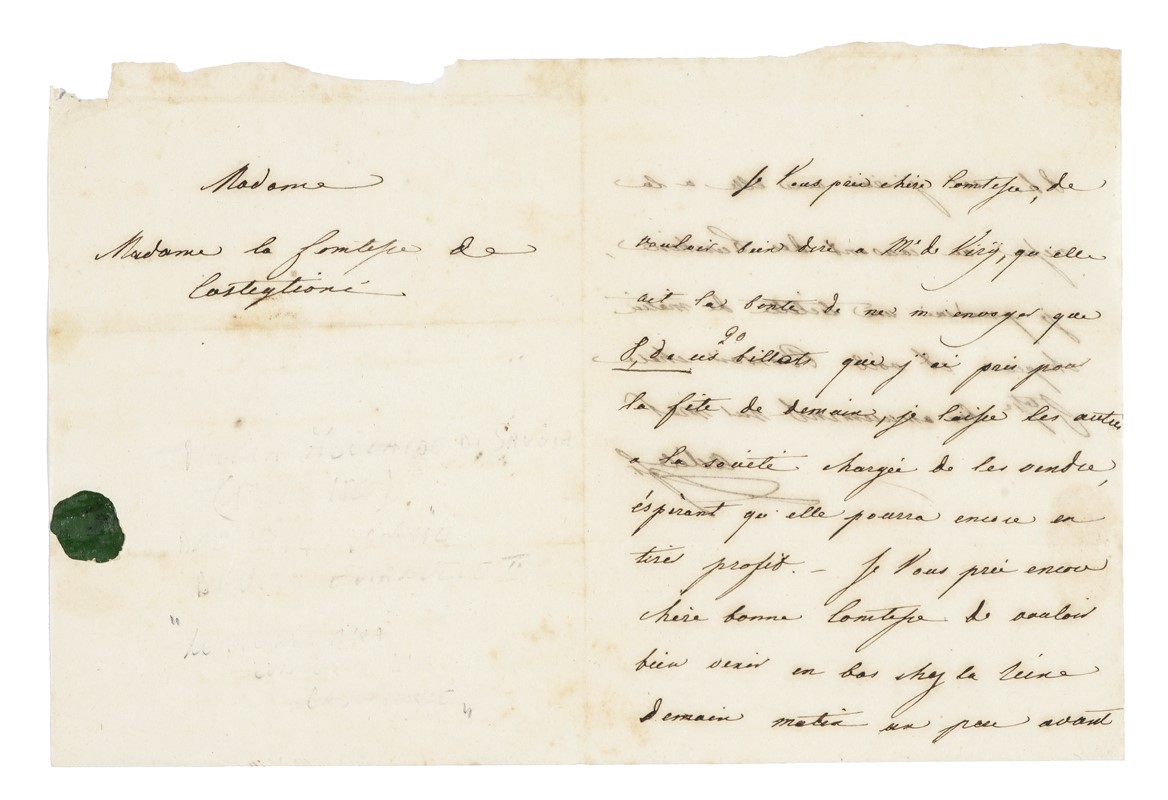 Madame
Madame la Comtesse de
Casteglioné
Je Vous prie chère Comtesse, de
vouloir bien dire a Md de Kiry, qu'elle
ait la bonté de ne m'envoyer que
8, de ces 20 billets que j'ai pris pour
la fête de demain, je laisse les autres
a la societé chargée de les vendre,
éspèrant qu'elle pourra encore en
tirer profit. – Je Vous prie encore
chère bonne Comtesse de vouloir
bien venir en bas chez la reine
demain matin un peu avant